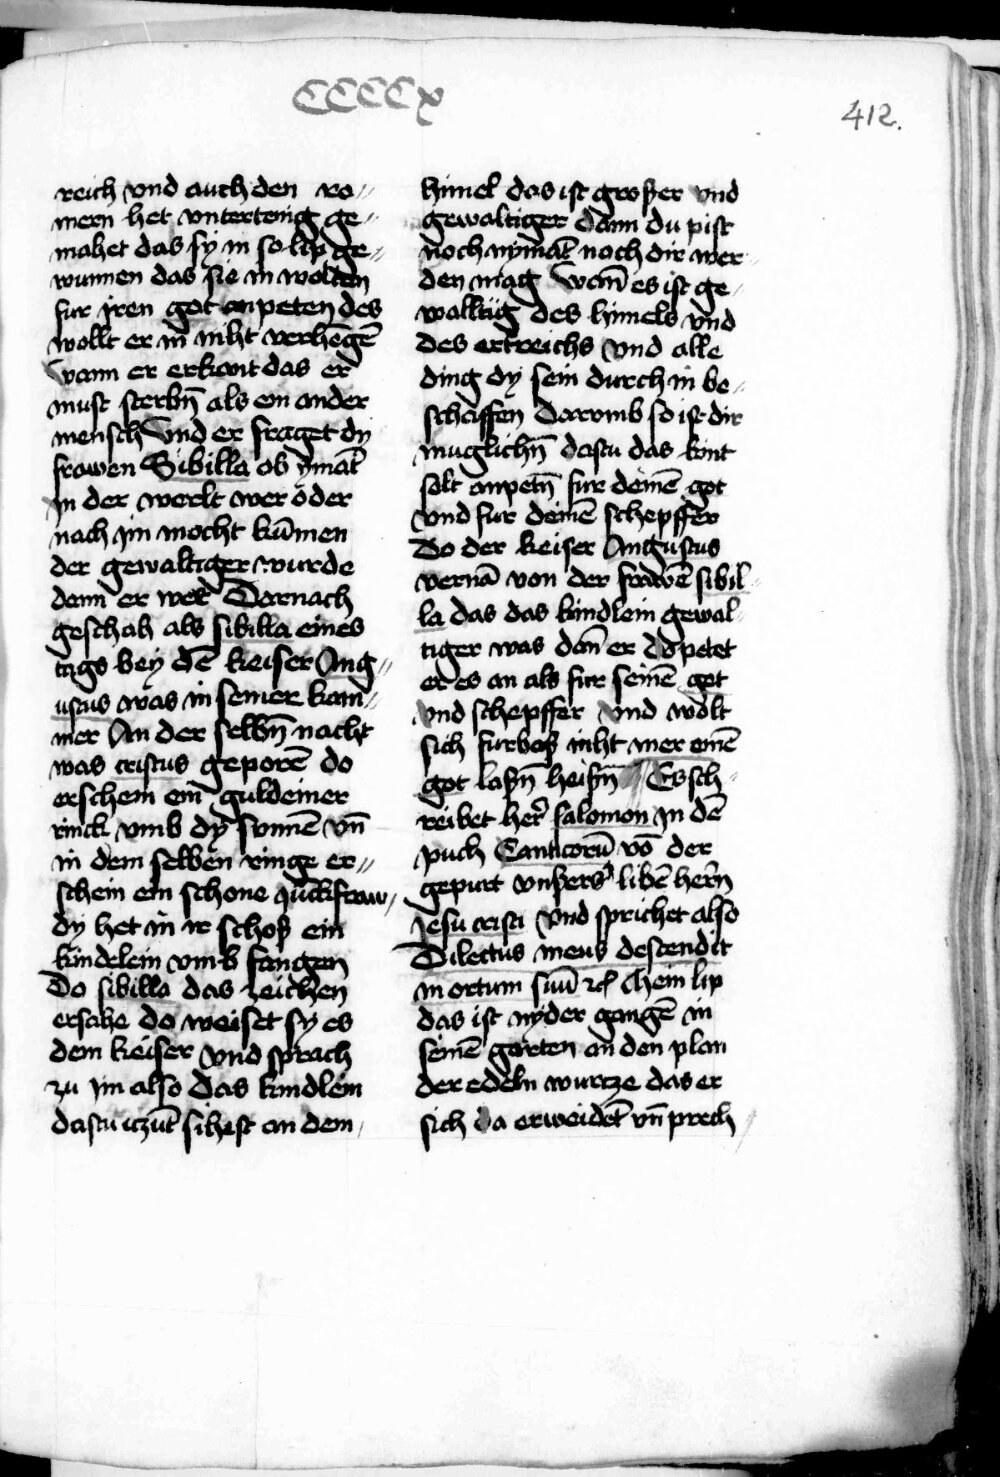 CCCCx
412.
reich vnd auch den ro⸗
mern het vntertenig ge⸗
mahet das sy in so lip ge⸗
wunnen das sie in wolten
fur jren got anpeten des
wollt er in niht verhēgē
wann er erkant das er
must sterbn̄ als ein ander
mensch Vnd er fraget dy
frawen Sibilla ob ymāt
jn der werlt wer oder
nach jm mocht kūmen
der gewaltiger wurde
dann er wer Darnach
geschah als sibilla eines
tags bey dē keiser Aug⸗
ustus was in seiner kam⸗
mer An der selbn̄ nacht
was cristus geporē do
erschein ein guldeiner
rinck vmb dy sunnē vn̄
in dem selben ringe er⸗
schein ein schone junckfraw
dy het in ir schoß ein
kindelein vmb fangen
Do sibilla das zeichen
ersahe do weiset sy es
dem keiser vnd sprach
zu jm also Das kindlein
dastu iczūt sihest an dem
himel das ist großer vnd
gewaltiger dann du pist
noch nymāt noch dir wer⸗
den mag Wan̄ es ist ge⸗
waltig des himels vnd
des ertreichs Vnd alle
ding dy sein durch in be⸗
schaffen Darvmb so ist dir
muglichn̄ dastu das kint
solt anpetn̄ fur deinē got
vnd fur deinē schepffer
Do der keiser Augustus
vernā von der frawē sibil⸗
la das das kindlein gewal⸗
tiger was dan̄ er do petet
er es an als fur seinē got
vnd schepffer vnd wolt
sich furbaß niht mer einē
got laßn̄ heißn̄ Es sch⸗
reibet her̄ salomon jn dē
puch Canticorū vō der
gepurt vnßers libē hern̄
jesu cristi Vnd sprichet also
Dilectus meus descendit
in ortum suū ꝛc̄ Mein lip
das ist nyder gangē in
seinē garten an den plan
der edeln wurtze das er
sich da erweidēt vn̄ prech